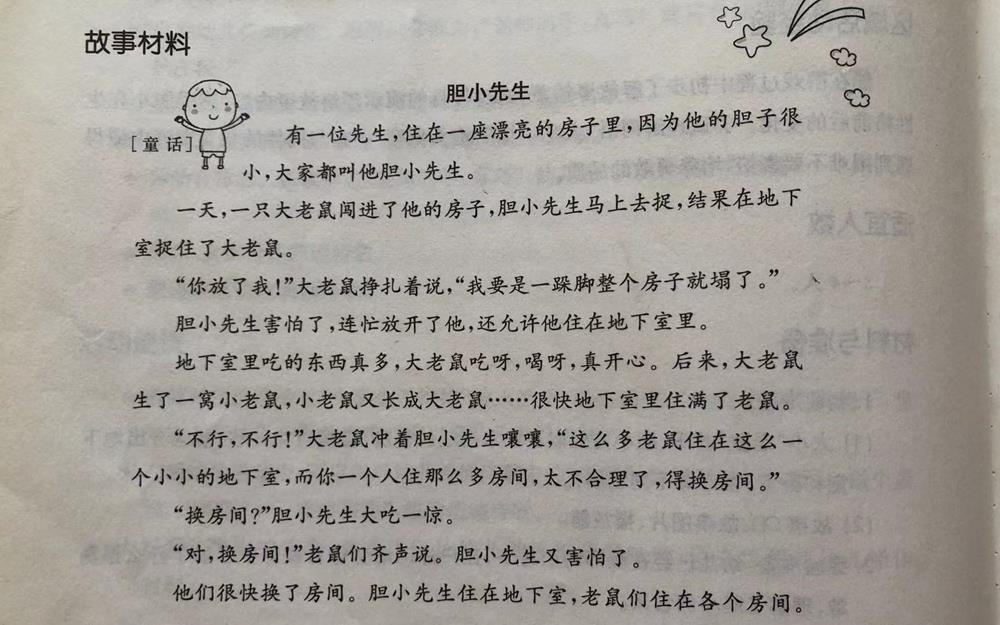 故事材料
胆小先生
[童话]
有一位先生，住在一座漂亮的房子里，因为他的胆子很
小，大家都叫他胆小先生。
一天，一只大老鼠闯进了他的房子，胆小先生马上去捉，结果在地下
室捉住了大老鼠。
“你放了我！”大老鼠挣扎着说，“我要是一跺脚整个房子就塌了。”
胆小先生害怕了，连忙放开了他，还允许他住在地下室里。
地下室里吃的东西真多，大老鼠吃呀，喝呀，真开心。后来，大老鼠
生了一窝小老鼠，小老鼠又长成大老鼠……很快地下室里住满了老鼠。
“不行，不行！”大老鼠冲着胆小先生嚷嚷，“这么多老鼠住在这么一
个小小的地下室，而你一个人住那么多房间，太不合理了，得换房间。”
“换房间？”胆小先生大吃一惊。
“对，换房间！”老鼠们齐声说。胆小先生又害怕了。
他们很快换了房间。胆小先生住在地下室，老鼠们住在各个房间。